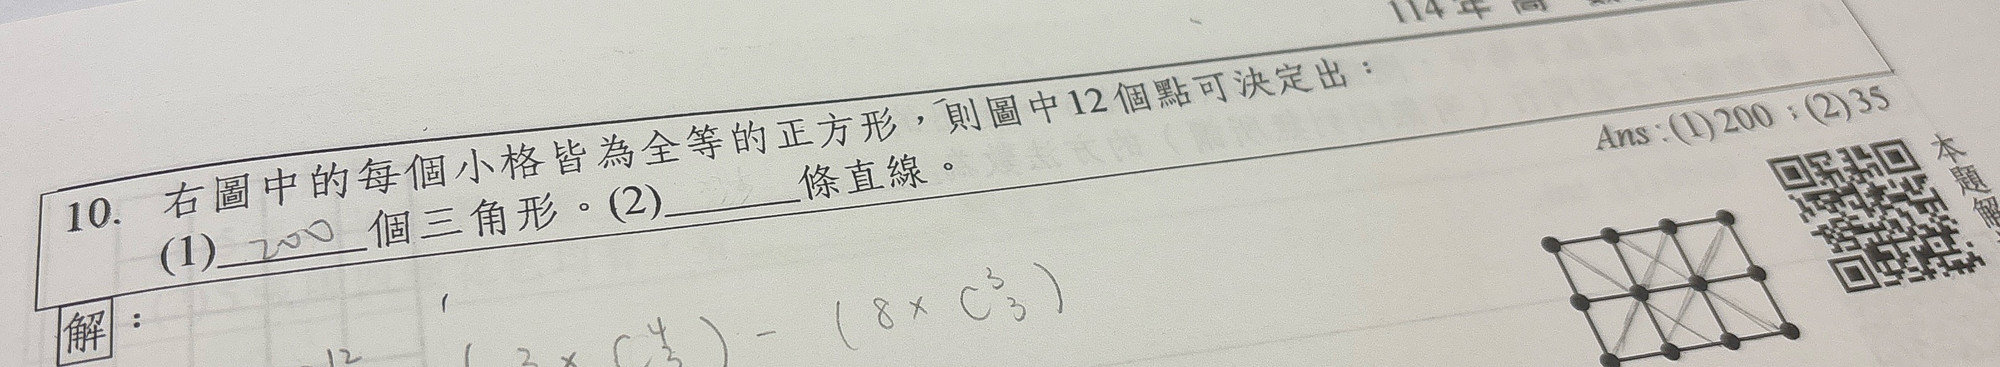 114年
10. 右圖中的每個小格皆為全等的正方形，則圖中12個點可決定出：
(1) 200 個三角形。(2)______條直線。
Ans：(1)200；(2)35
本題解
解：
12 (3×C⁴₃) - (8×C³₃)